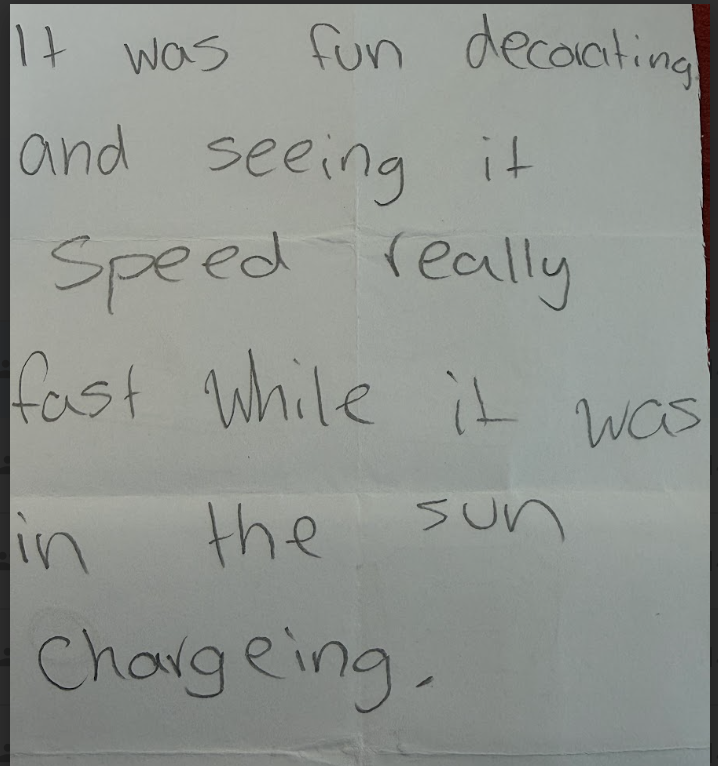 It was fun decorating
and seeing it
Speed really
fast While it was
in the sun
Chargeing.